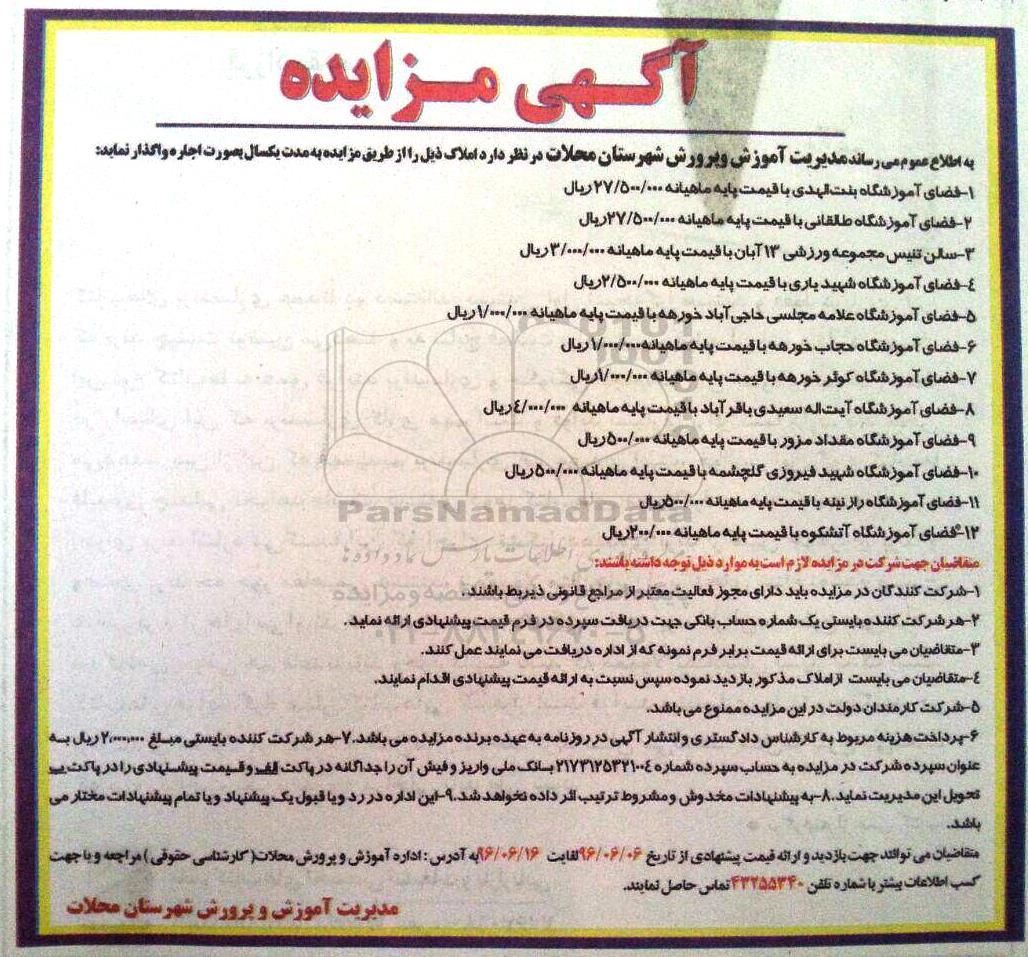 آگهی مزایده
به اطلاع عموم می رساند مدیریت آموزش وپرورش شهرستان محلات در نظر دارد املاک ذیل را از طریق مزایده به مدت یکسال بصورت اجاره واگذار نماید:
۱-فضای آموزشگاه بنت‌الهدی با قیمت پایه ماهیانه ۲۷/۵۰۰/۰۰۰ ریال
۲-فضای آموزشگاه طالقانی با قیمت پایه ماهیانه ۲۷/۵۰۰/۰۰۰ریال
۳-سالن تنیس مجموعه ورزشی ۱۳ آبان با قیمت پایه ماهیانه ۳/۰۰۰/۰۰۰ ریال
۴-فضای آموزشگاه شهید یاری با قیمت پایه ماهیانه ۲/۵۰۰/۰۰۰ریال
۵-فضای آموزشگاه علامه مجلسی حاجی آباد خورهه با قیمت پایه ماهیانه ۱/۰۰۰/۰۰۰ریال
۶-فضای آموزشگاه حجاب خورهه با قیمت پایه ماهیانه۱/۰۰۰/۰۰۰ ریال
۷-فضای آموزشگاه کوثر خورهه با قیمت پایه ماهیانه ۱/۰۰۰/۰۰۰ریال
۸-فضای آموزشگاه آیت‌اله سعیدی باقر آباد با قیمت پایه ماهیانه ۴/۰۰۰/۰۰۰ریال
۹-فضای آموزشگاه مقداد مزور با قیمت پایه ماهیانه ۵۰۰/۰۰۰ریال
۱۰-فضای آموزشگاه شهید فیروزی گلچشمه با قیمت پایه ماهیانه ۵۰۰/۰۰۰ریال
۱۱-فضای آموزشگاه راز نیته با قیمت پایه ماهیانه ۵۰۰/۰۰۰ریال
۱۲-فضای آموزشگاه آتشکوه با قیمت پایه ماهیانه ۲۰۰/۰۰۰ریال
ParsNamadData
متقاضیان جهت شرکت در مزایده لازم است به موارد ذیل توجه داشته باشند:
۱-شرکت کنندگان در مزایده باید دارای مجوز فعالیت معتبر از مراجع قانونی ذیربط باشند.
۲-هر شرکت کننده بایستی یک شماره حساب بانکی جهت دریافت سپرده در فرم قیمت پیشنهادی ارائه نماید.
۳-متقاضیان می بایست برای ارائه قیمت برابر فرم نمونه که از اداره دریافت می نمایند عمل کنند.
۴-متقاضیان می بایست ازاملاک مذکور بازدید نموده سپس نسبت به ارائه قیمت پیشنهادی اقدام نمایند.
۵-شرکت کارمندان دولت در این مزایده ممنوع می باشد.
۶-پرداخت هزینه مربوط به کارشناس دادگستری و انتشار آگهی در روزنامه به عهده برنده مزایده می باشد.۷-هر شرکت کننده بایستی مبلغ ۲،۰۰۰،۰۰۰ ریال به
عنوان سپرده شرکت در مزایده به حساب سپرده شماره ۲۱۷۳۱۲۵۳۲۱۰۰۴ بانک ملی واریز و فیش آن را جداگانه در پاکت الف و قیمت پیشنهادی را در پاکت ب
تحویل این مدیریت نماید.۸-به پیشنهادات مخدوش و مشروط ترتیب اثر داده نخواهد شد.۹-این اداره در رد و یا قبول یک پیشنهاد و یا تمام پیشنهادات مختار می
باشد.
متقاضیان می توانند جهت بازدید و ارائه قیمت پیشنهادی از تاریخ ۹۶/۰۶/۰۶لغایت ۹۶/۰۶/۱۶به آدرس : اداره آموزش و پرورش محلات( کارشناسی حقوقی ) مراجعه و یا جهت
کسب اطلاعات بیشتر با شماره تلفن ۴۳۲۵۵۳۴۰تماس حاصل نمایند.
مدیریت آموزش و پرورش شهرستان محلات